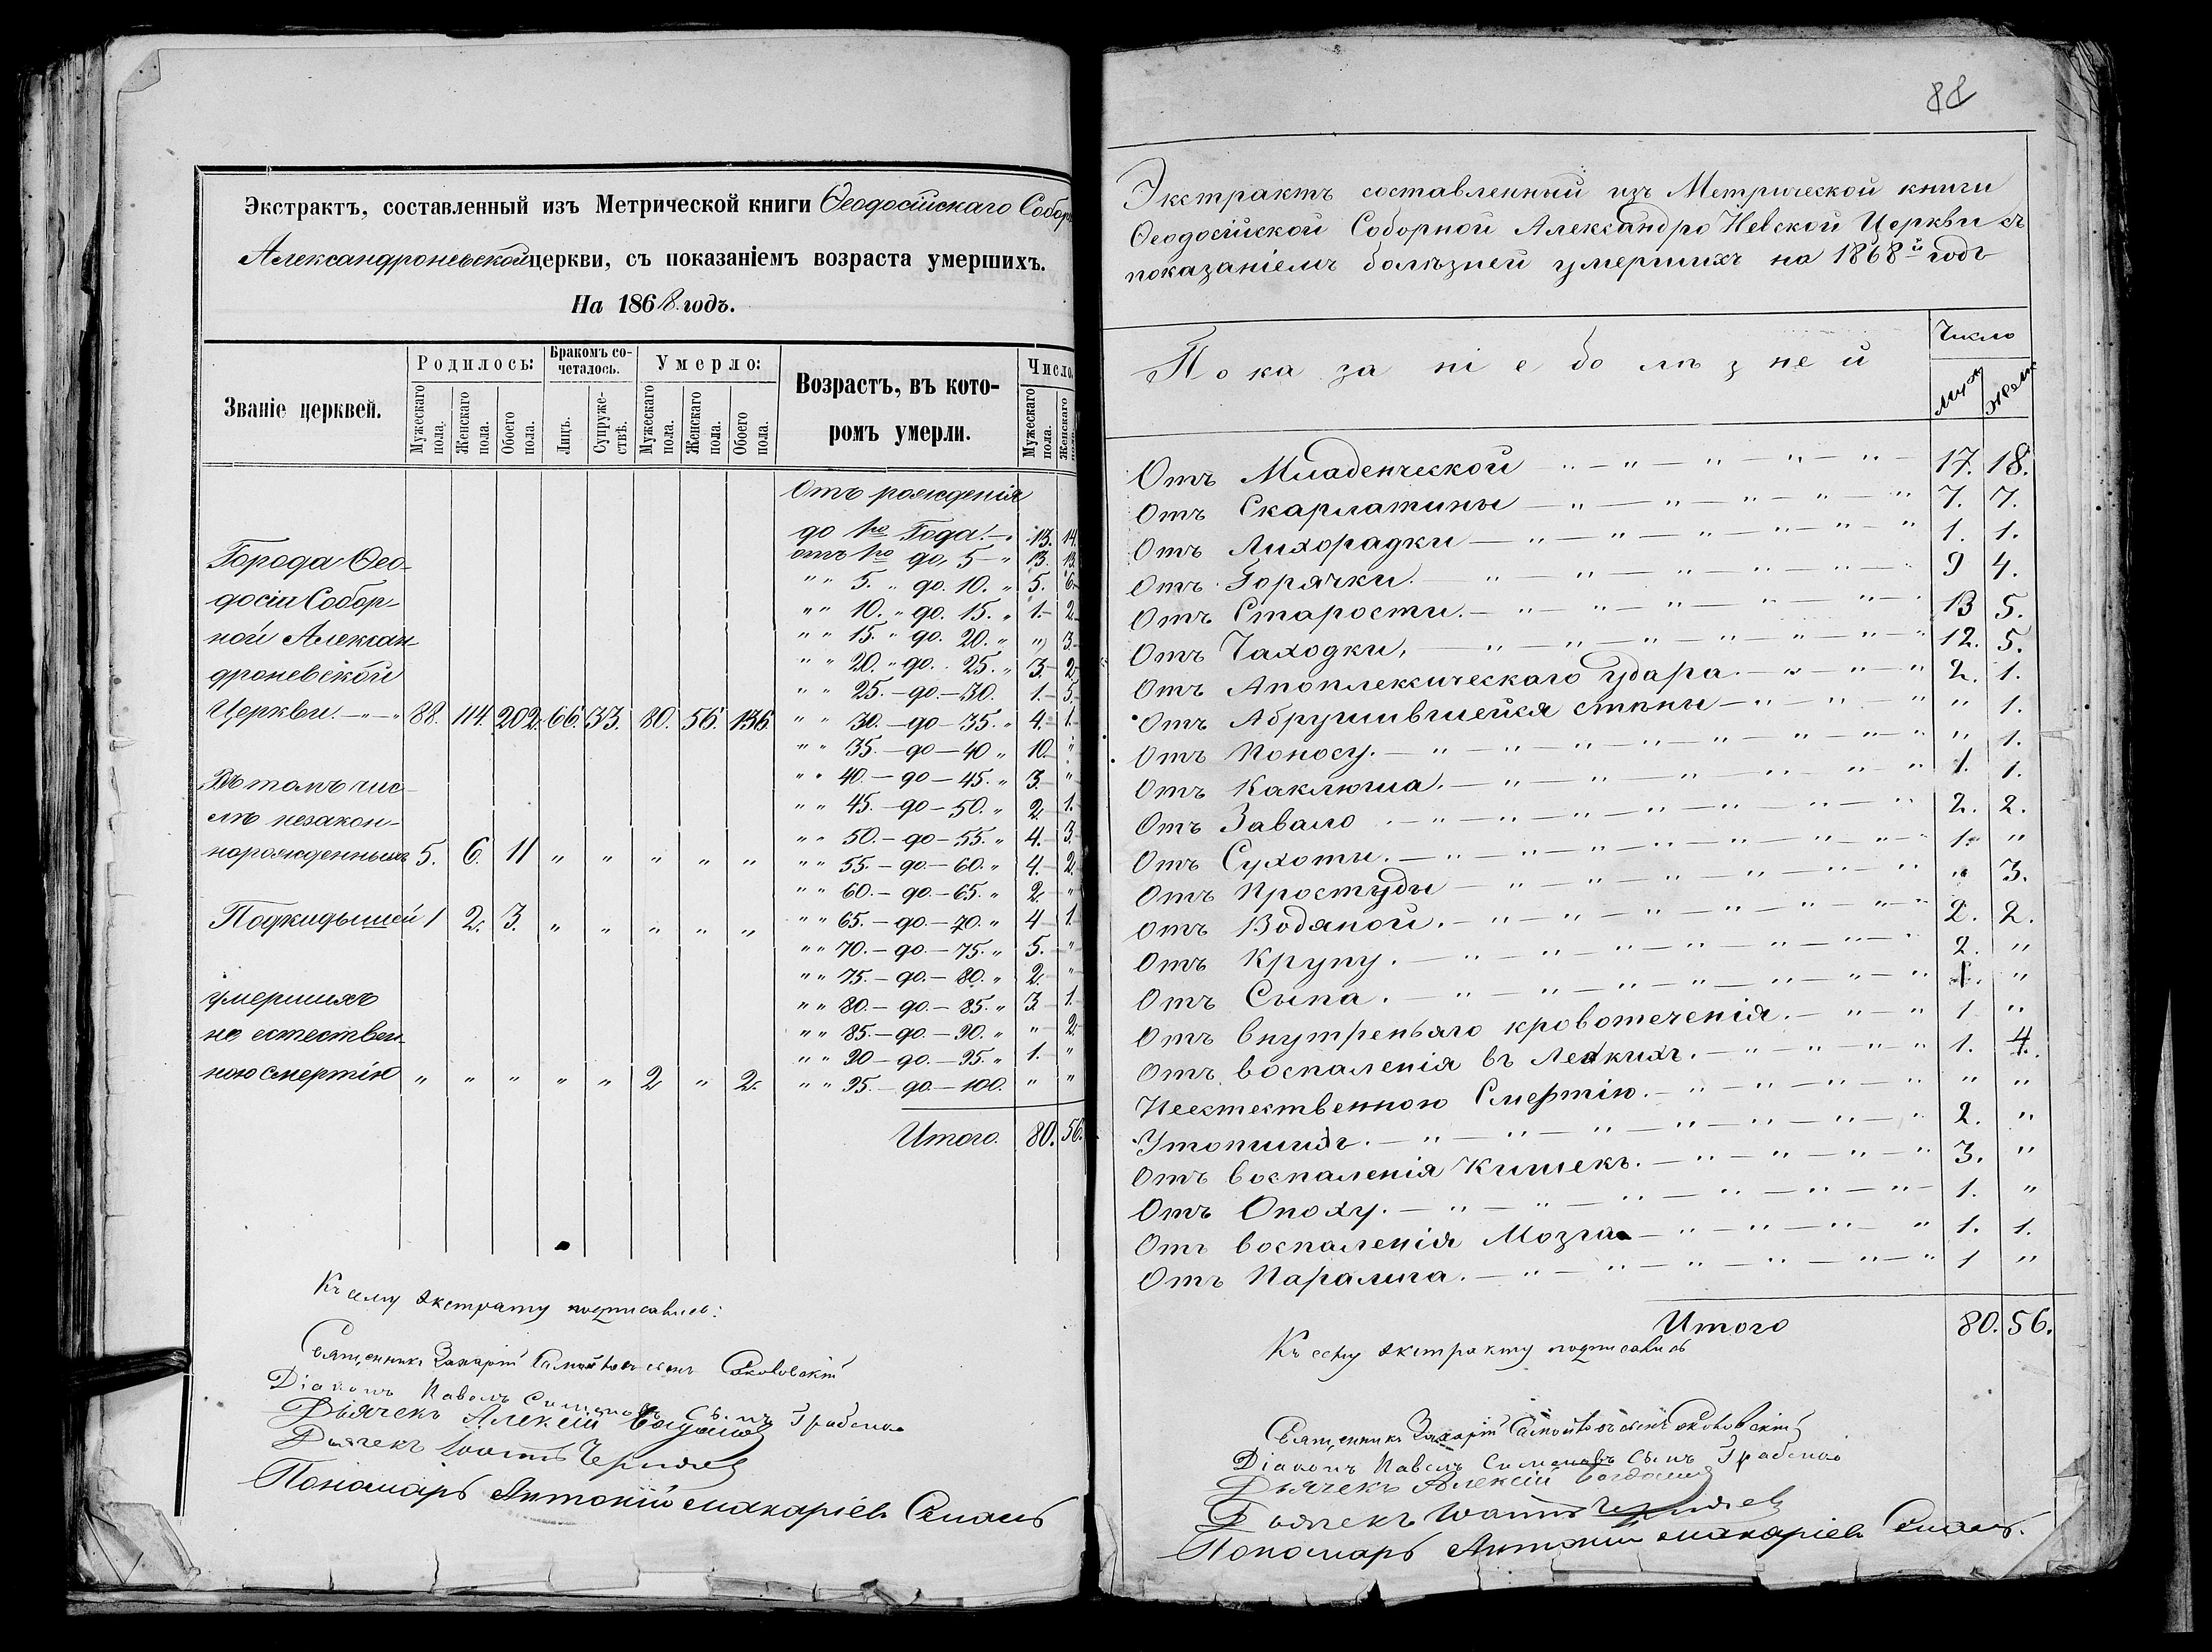 Экстрактъ, составленный изъ Метрической книги Ѳеодосійскаго Собор
Александроневской церкви, съ показаніемъ возраста умершихъ.
На 1868. годъ.
Званіе церквей.
Родилось:
Мужескаго пола.
Женскаго пола.
Обоего пола.
Бракомъ сочеталось.
Лицъ.
Супружествъ.
Умерло:
Мужескаго пола.
Женскаго пола.
Обоего пола.
Возрастъ, въ кото-
ромъ умерли.
Число.
Мужескаго пола.
Женскаго
Города Ѳео-
досіи Собор-
ной Алексан-
дроневской
Церкви. — " — " 88. 114. 202. 66. 33. 80. 56. 136.
Въ томъ чис-
лѣ незакон-
норожденныхъ 5. 6. 11 " " " " "
Подкидышей 1 2. 3. " " " " "
умершихъ
не естествен-
ною смертію " " " " " 2 " 2.
Отъ рожденія
до 1го Года. — 13. 14.
отъ 1го до 5 — " 13. 13.
" " 5. " до. 10. " 5. 6.
" " 10. " до. 15. " 1. 2.
" " 15. " до. 20. " " 3.
" " 20. " до. 25. " 3. 2
" " 25. — до. — 30. 1. 5.
" " 30. — до — 35. " 4. 1.
" " 35. — до — 40 " 10. "
" " 40. — до — 45. " 3. "
" " 45. — до — 50. " 2 1.
" " 50. — до — 55. " 4. 3.
" " 55. — до — 60. " 4. 2.
" " 60. — до. — 65. " 2. "
" " 65. — до. — 70. " 4 1.
" " 70. — до. — 75. " 5. "
" " 75. — до. — 80. " 2. "
" " 80. — до. — 85. " 3. 1.
" " 85. — до. — 90. " " 2.
" " 90 — до. — 95. " 1. "
" " 95. — до. — 100. " "
Итого. 80. 56.
Къ сему экстрату подписались:
Священникъ Захарій Самойловъ сынъ Соколовскій
Діаконъ Павелъ Симоновъ Сынъ
Дьячекъ Алексій
Дьячекъ Іоаннъ
Пономарь Антоній Макаріевъ
88
Экстрактъ составленный изъ Метрической книги
Ѳеодосійской Соборной Александро Невской Церкви съ
показаніемъ болѣзней умершихъ на 1868й годъ
Показаніе болѣзней
Число
муж
жен
Отъ Младенческой — " — " — " — " — " — 17. 18.
Отъ Скарлатины — " — " — " — " — " 7. 7.
Отъ Лихорадки — " — " — " — " — " — " 1. 1.
Отъ Горячки. — " — " — " — " — " — 9 4.
Отъ Старости. — " — " — " — " — " — 13 5.
Отъ Чахотки, — " — " — " — " — " — " 12. 5.
Отъ Апоплексическаго удара. — " — " — " 2. 1.
Отъ Абрушившейся стѣны — " — " — " " 1.
Отъ Поносу. — " — " — " — " — " — " " 1.
Отъ Каклюша. — " — " — " — " — " 1. 1.
Отъ Завало — " — " — " — " — " — " 2. 2.
Отъ Сухоты. — " — " — " — " — " — " 1. "
Отъ Простуды — " — " — " — " — " — " " 3.
Отъ Водяной. — " — " — " — " — " — " 2. 2.
Отъ Крупу. — " — " — " — " — " — " 2. "
Отъ Сыпа. — " — " — " — " — " — " 1. "
Отъ внутреньяго кровотеченія. — " — " 1 "
Отъ воспаленія въ Легкихъ. — " — " — " 1. 4.
Неестественною Смертію. — " — " — " — " " "
Утопшихъ. — " — " — " — " — " — " 2. "
Отъ воспаленія Кишекъ. — " — " — " — " 3. "
Отъ Опоху. — " — " — " — " — " — 1. "
Отъ воспаленія Мозга — " — " — " — " 1. 1.
Отъ Паралича. — " — " — " — " — " — " 1 "
Итого 80. 56.
Къ сему экстракту подписались
Священникъ Захарій Самойловъ сынъ Соколовскій
Діаконъ Павелъ Симоновъ Сынъ
Дьячекъ Алексій
Дьячекъ Іоаннъ
Пономарь Антоній Макаріевъ